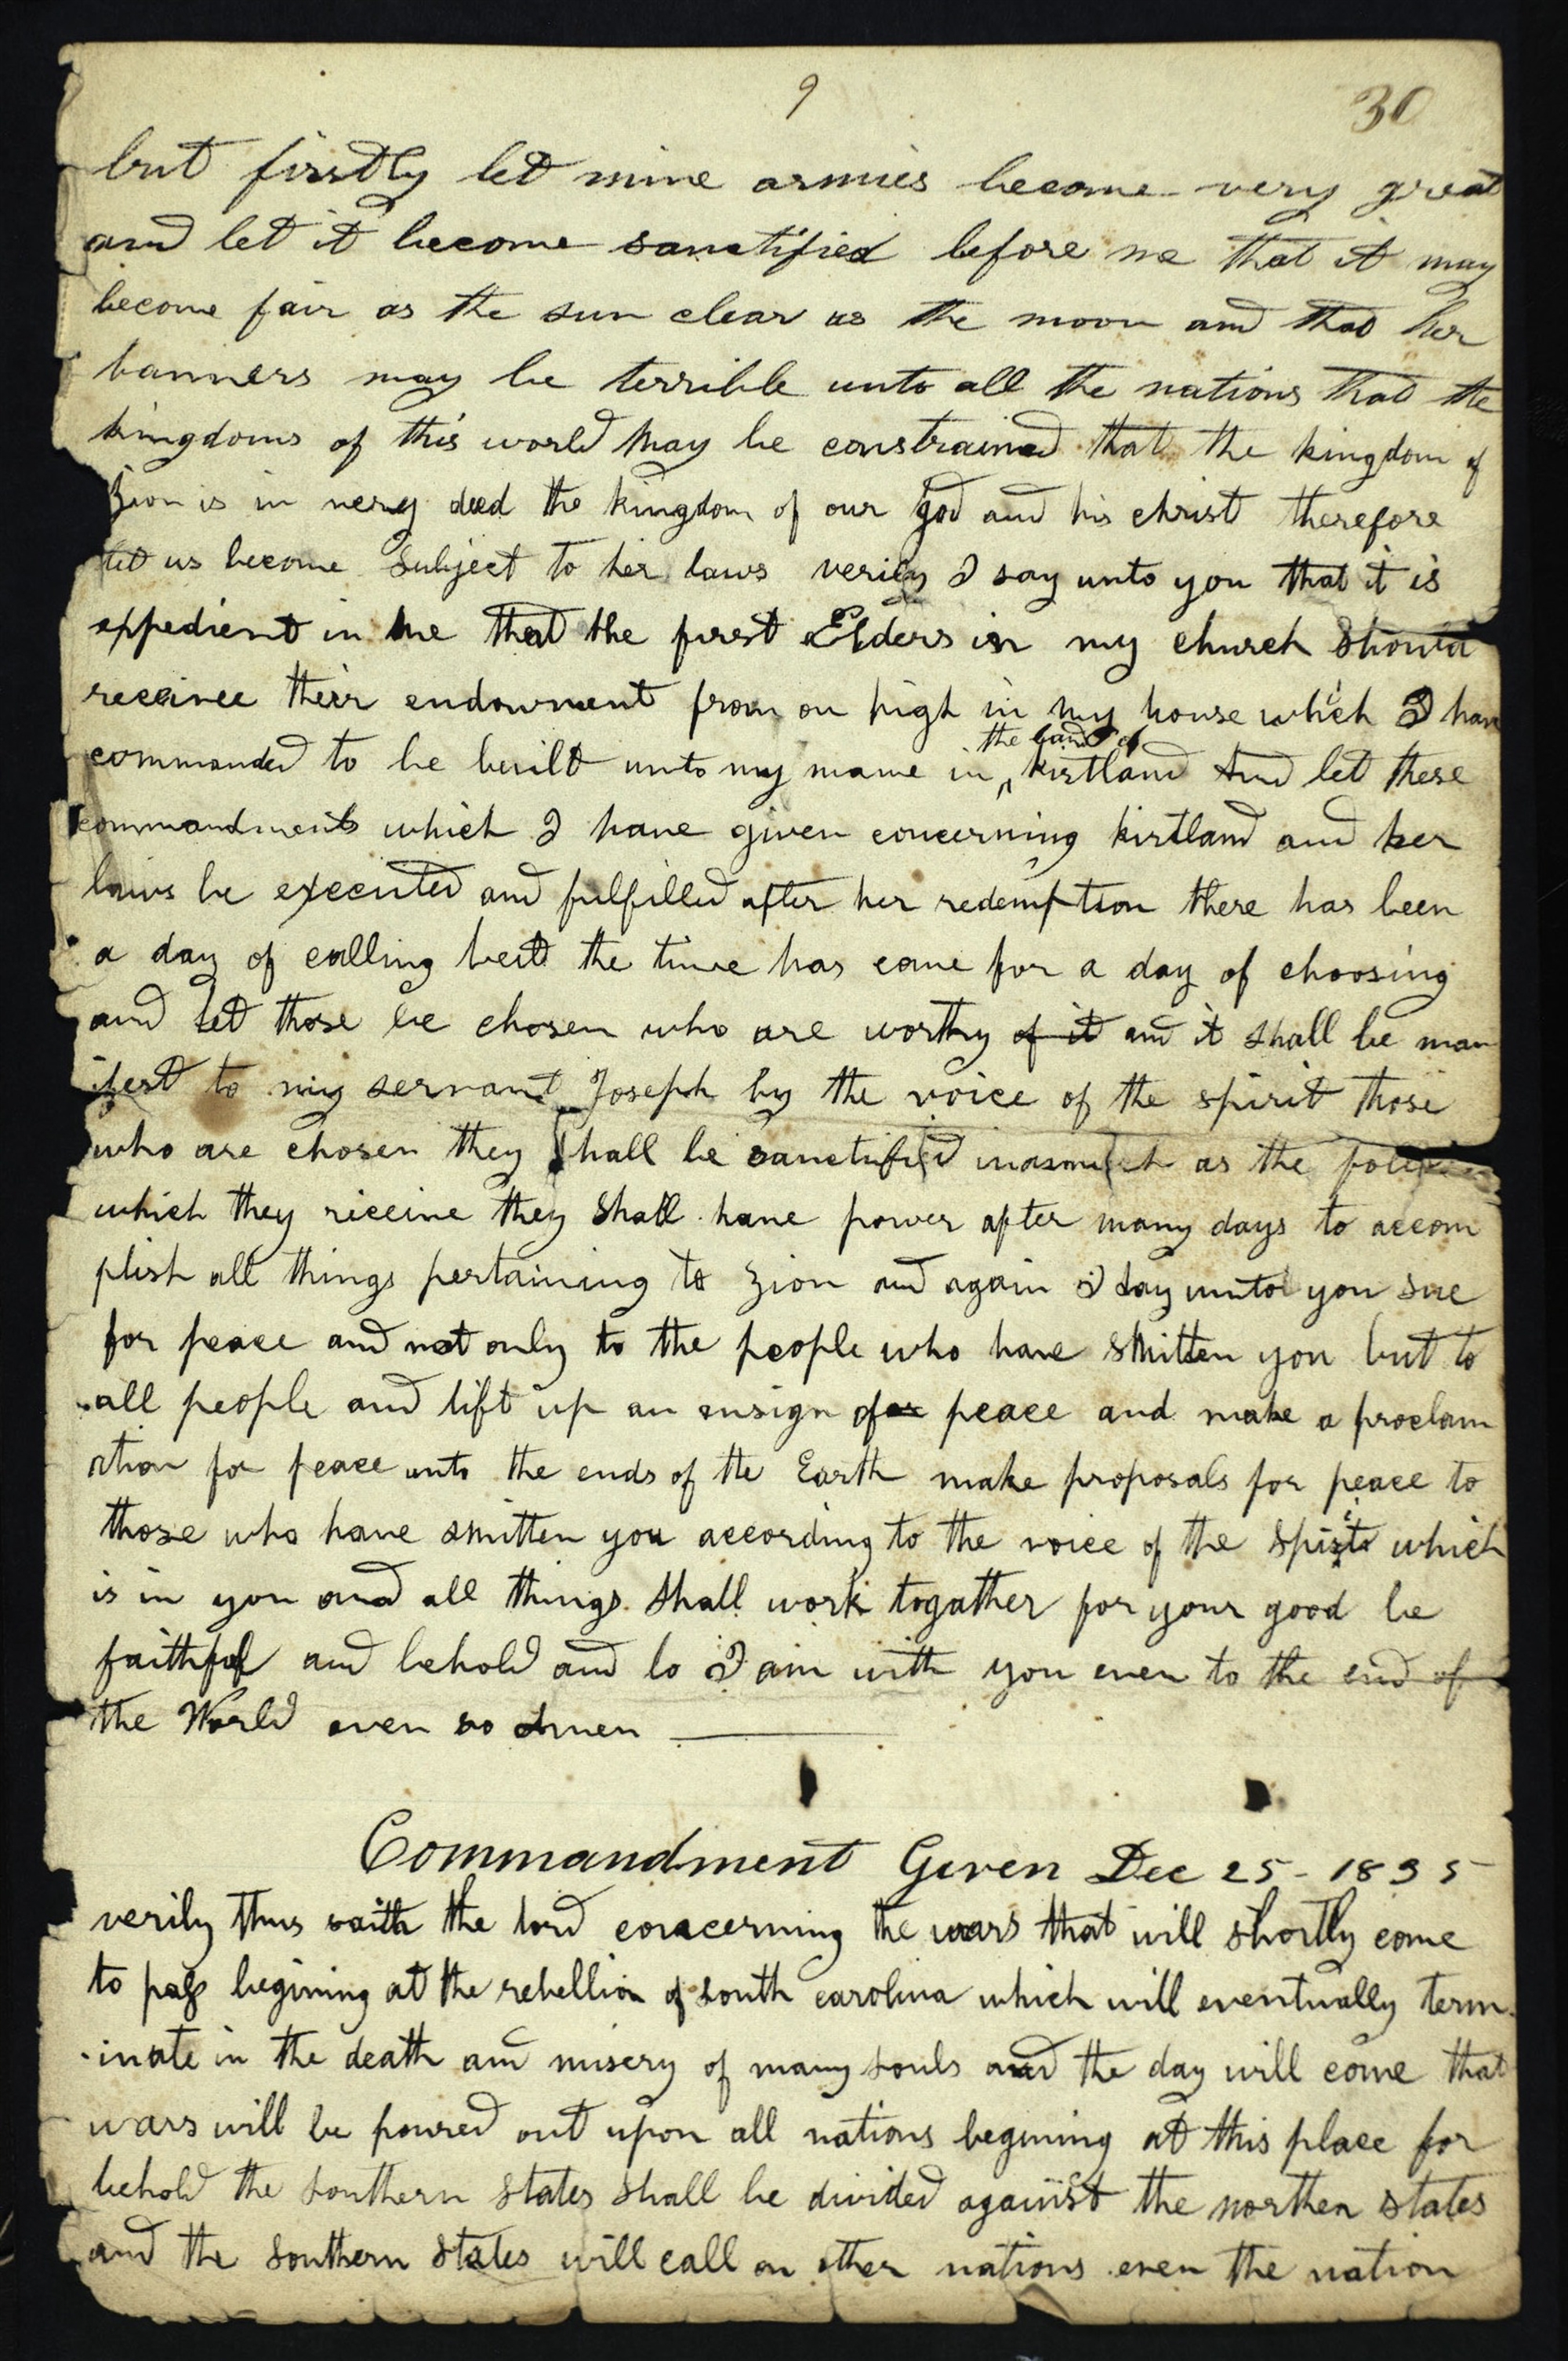 9
30
but firstly let mine armies become very great
and let it become sanctified before me that it may
become fair as the sun clear as the moon and that her
banners may be terrible unto all the nations that the
kingdoms of this world may be constrained that the kingdom of
Zion is in very deed the kingdom of our god and his christ therefore
let us become subject to her laws verily I say unto you that it is
expedient in me that the first Elders in my church should
receivee their endowment from on high in my house which I have
the land of
commanded to be built unto my name in ‸ kirtland And let these
commandments which I have given concerning kirtland and her
laws be executed and fulfilled after her redemption there has been
a day of calling but the time has come for a day of choosing
and let those be chosen who are worthy of it and it shall be man
ifest to my servant Joseph by the voice of the spirit those
who are chosen they shall be sanctified inasmuch as the
which they receive they shall have power after many days to accom
plish all things pertaining to zion and again I say unto you sue
for peace and not only to the people who have smitten you but to
all people and lift up an ensign for peace and make a proclam
ation for peace unto the ends of the Earth make proposals for peace to
those who have smitten you according to the voice of the spirit which
is in you and all things shall work togather for your good be
faithful and behold and lo I am with you even to the end of
the World even so amen
Commandment Given Dec 25 - 1835
verily thus saith the lord concerning the wars that will shortly come
to pass begining at the rebellion of south carolina which will eventually term
-inate in the death and misery of many souls and the day will come that
wars will be poured out upon all nations begining at this place for
behold the southern states shall be divided against the northen states
and the southern states will call on other nations even the nation